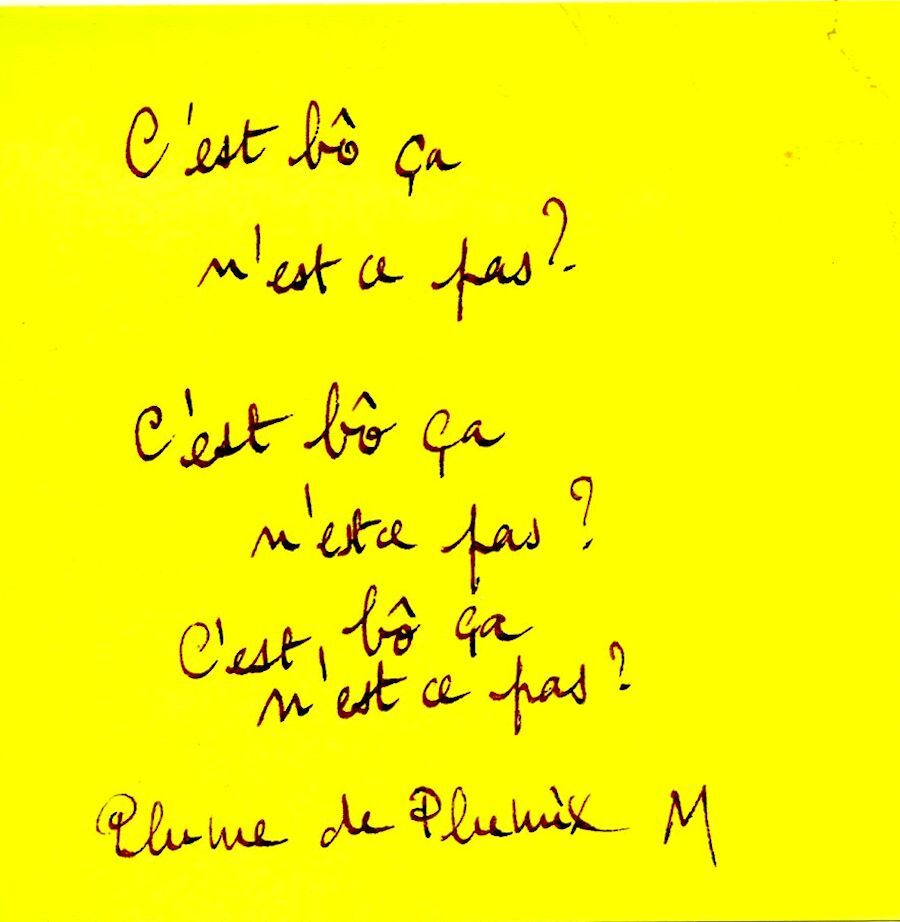 C'est bô ça
n'est ce pas?
C'est bô ça
n'est ce pas?
C'est bô ça
n'est ce pas?
Plume de Plumix M